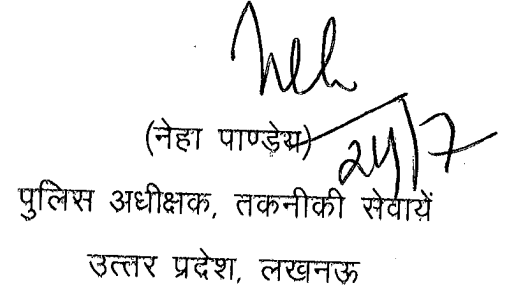 Neh
(नेहा पाण्डेय) 24/7
पुलिस अधीक्षक, तकनीकी सेवायें
उत्तर प्रदेश, लखनऊ